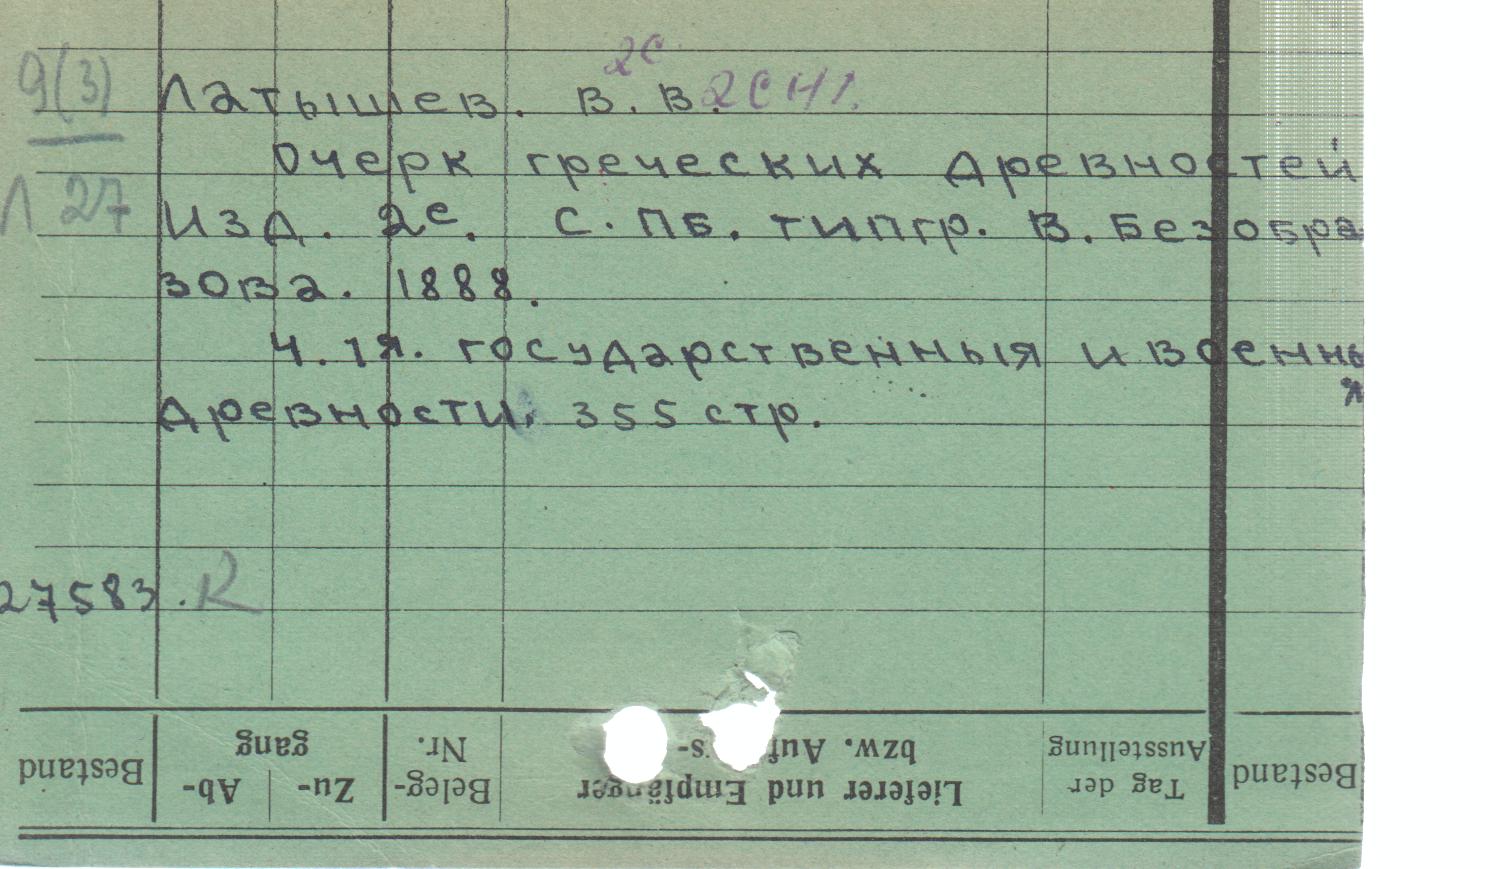 2е
9(3) Латышев. В. В. 2 е Н1.
Очерк греческих древностей
Л 27 изд. 2е. С. ПБ. типгр. В. Безобра
зова. 1888.
Ч. 1я. государственныя и военны
я
древности. 355 стр.
27583. R
Bestand Ab- Zu- gang Beleg- Nr. Lieferer und Empfänger bzw. Auf s- Tag der Ausstellung Bestand